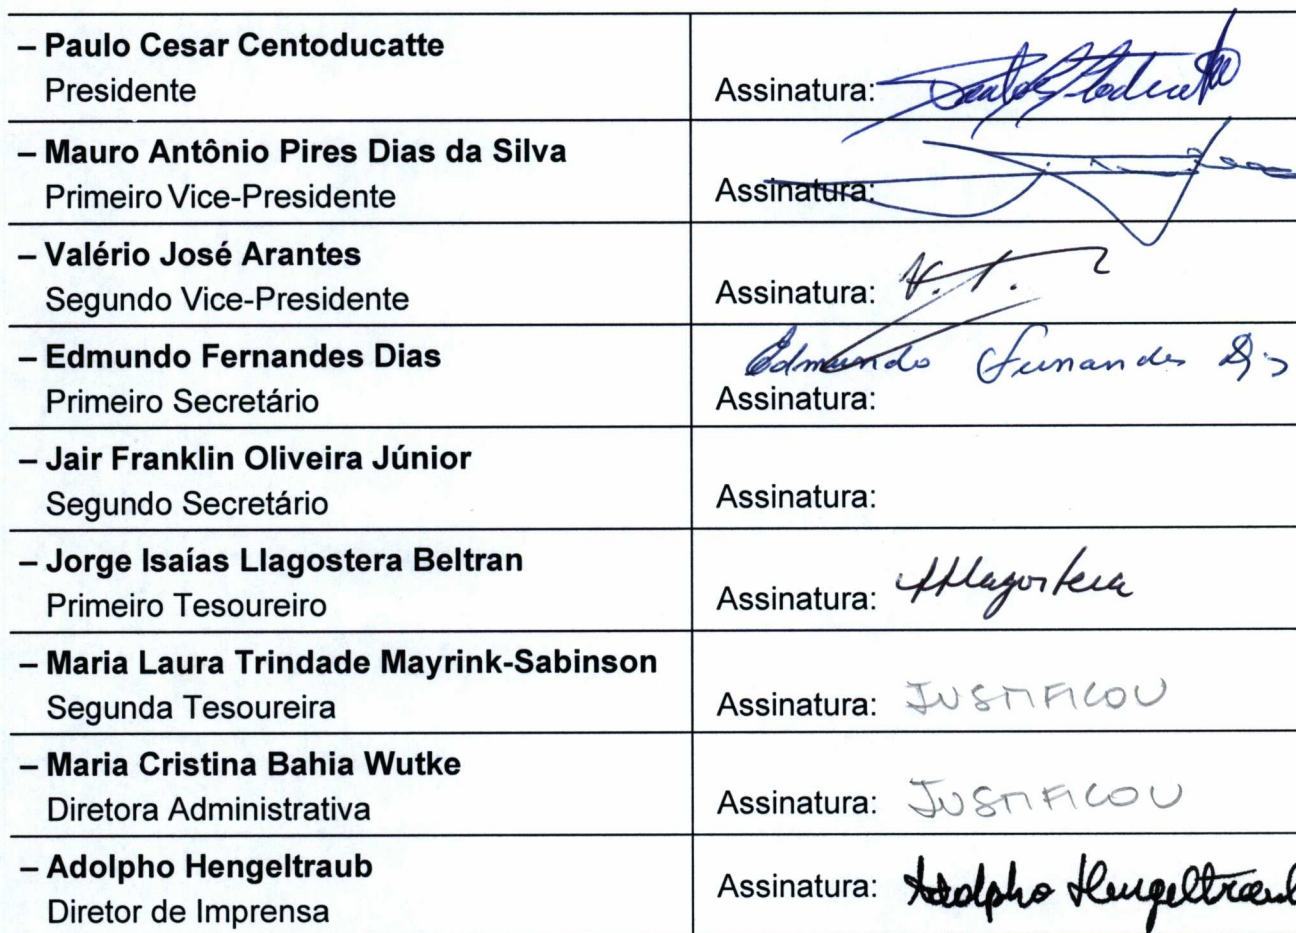 – Paulo Cesar Centoducatte
Presidente
Assinatura:
– Mauro Antônio Pires Dias da Silva
Primeiro Vice-Presidente
Assinatura:
– Valério José Arantes
Segundo Vice-Presidente
Assinatura:
– Edmundo Fernandes Dias
Primeiro Secretário
Edmundo Fernandes Dias
Assinatura:
– Jair Franklin Oliveira Júnior
Segundo Secretário
Assinatura:
– Jorge Isaías Llagostera Beltran
Primeiro Tesoureiro
Assinatura: Llagostera
– Maria Laura Trindade Mayrink-Sabinson
Segunda Tesoureira
Assinatura: JUSTIFICOU
– Maria Cristina Bahia Wutke
Diretora Administrativa
Assinatura: JUSTIFICOU
– Adolpho Hengeltraub
Diretor de Imprensa
Assinatura: Adolpho Hengeltraub